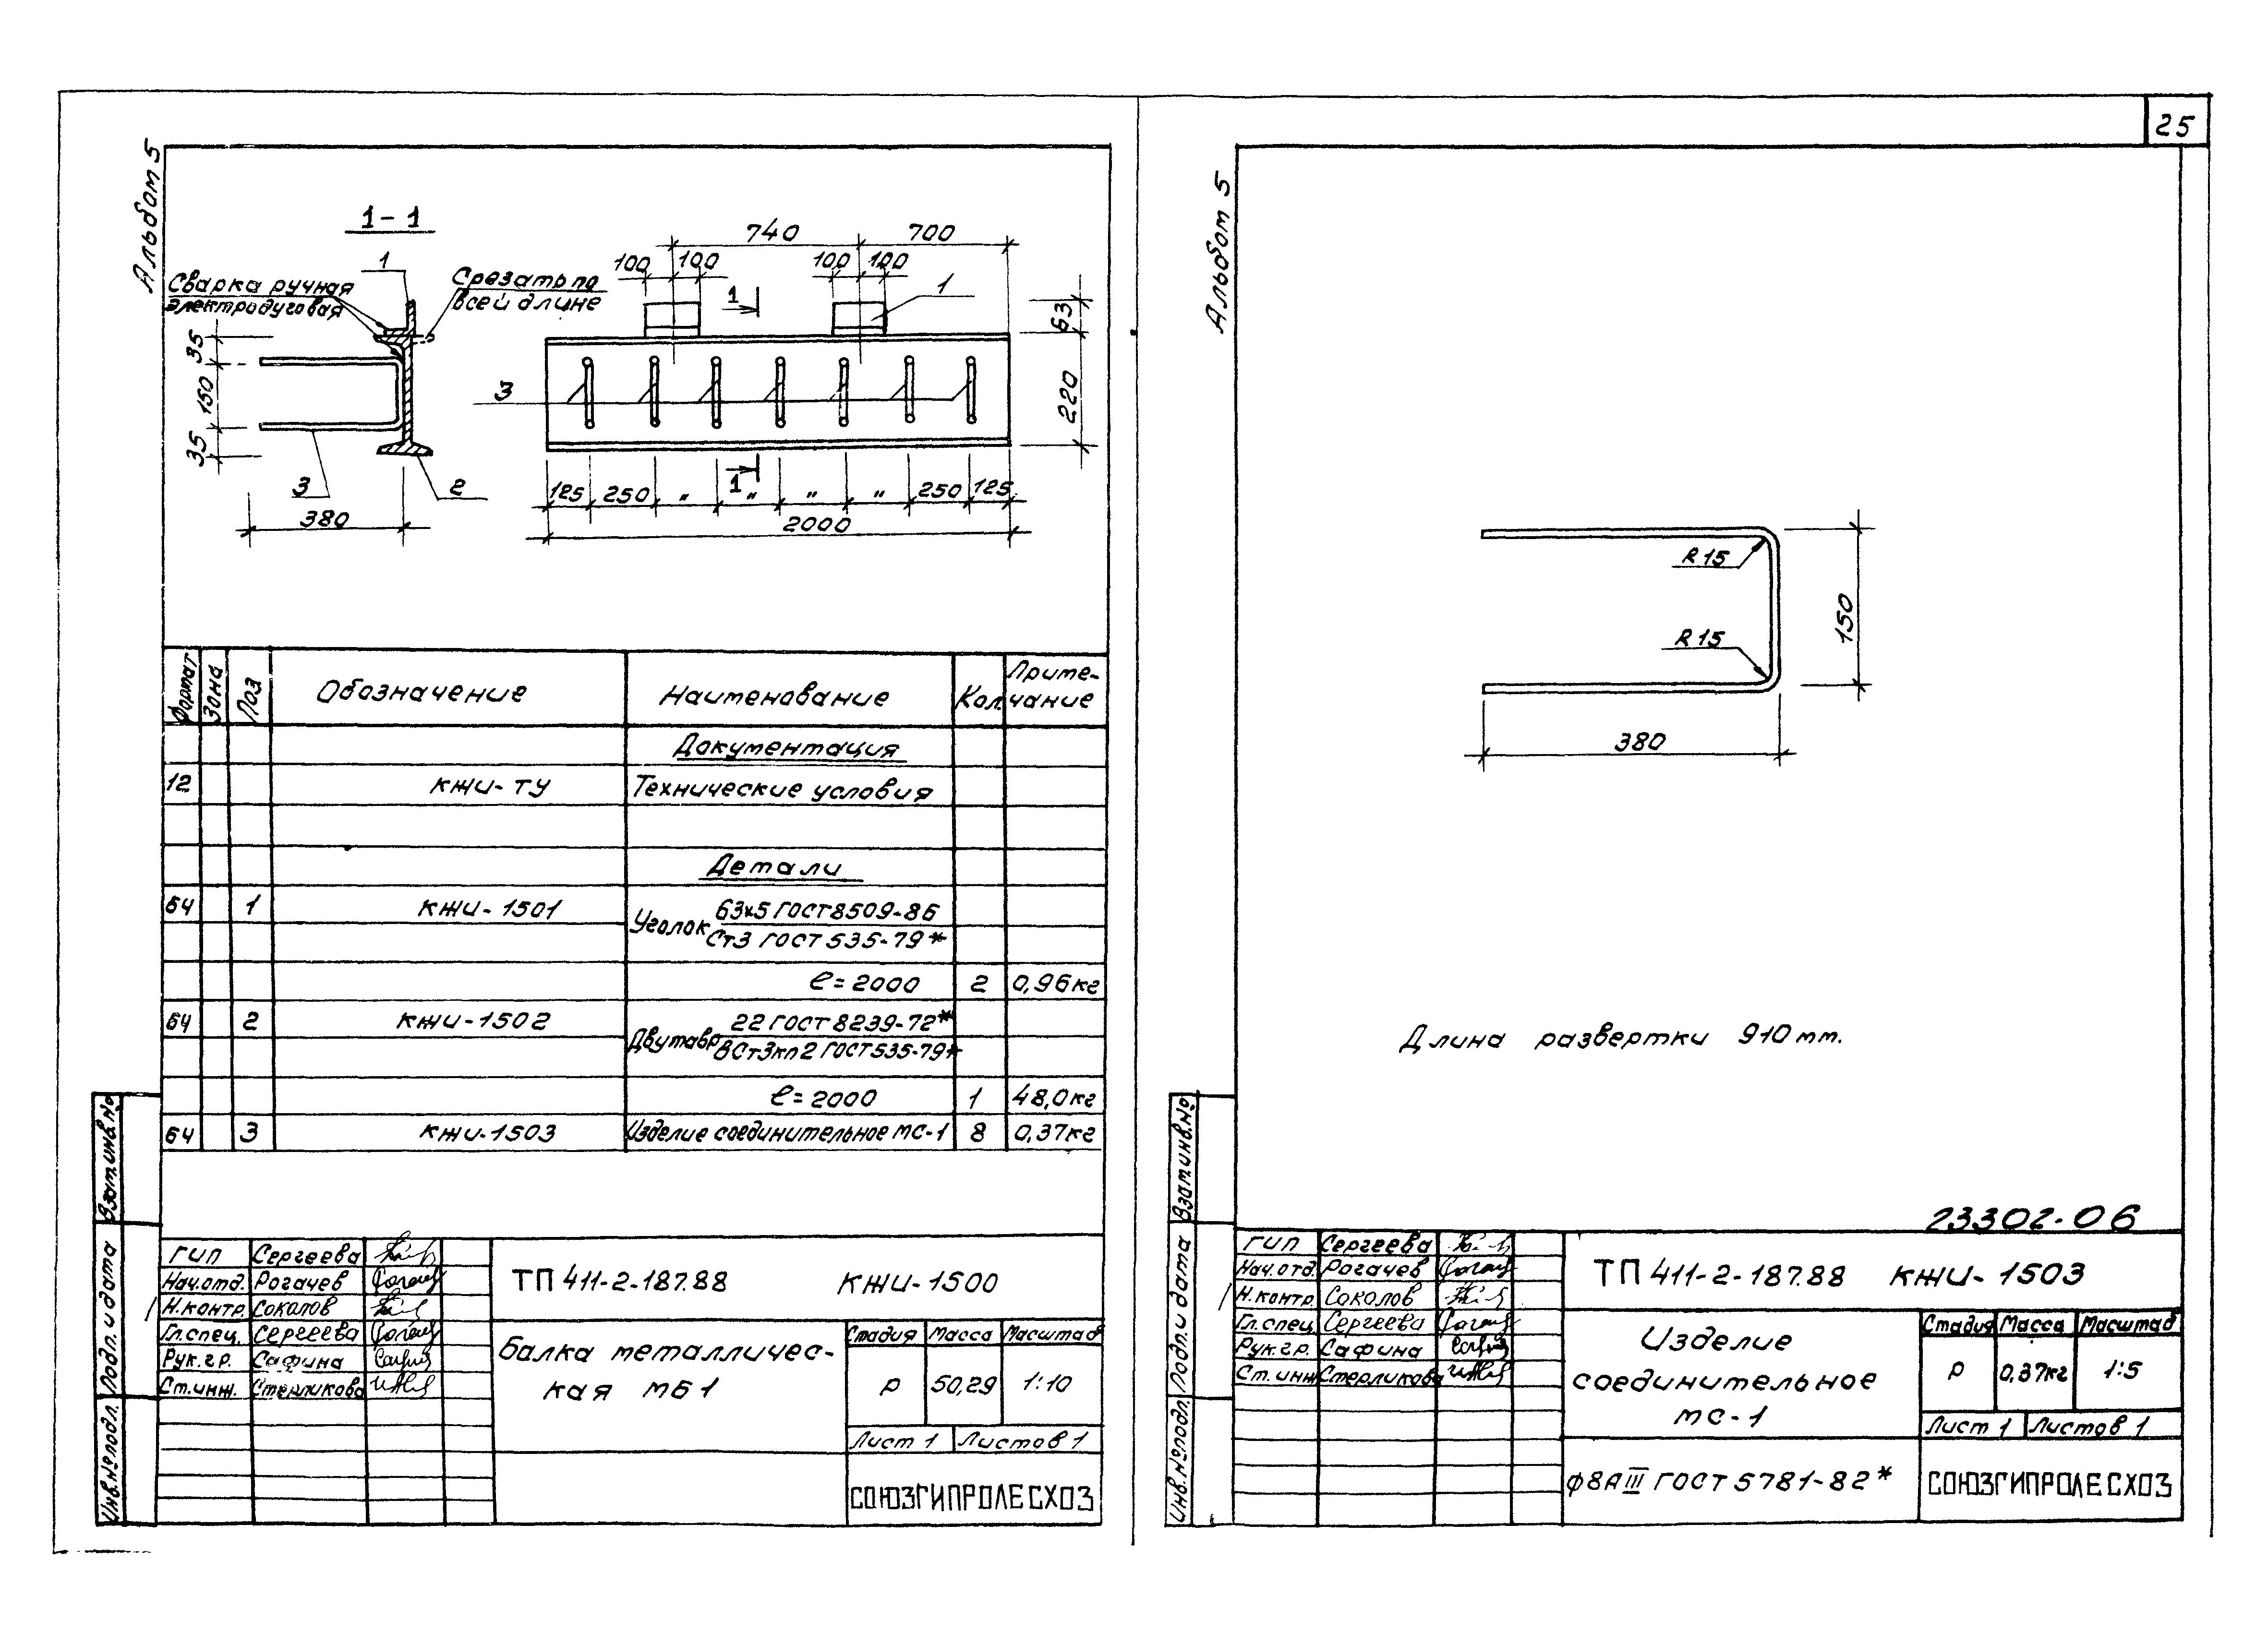 25
Альбом 5
1-1
1
Сварка ручная
электродуговая
Срезать по
всей длине
35
150
35
3
2
380
740
700
100
100
100
100
1
1
63
220
3
1
125
250
"
"
"
"
250
125
2000
Формат
Зона
Поз
Обозначение
Наименование
Кол.
Приме-
чание
Документация
12
КЖИ-ТУ
Технические условия
Детали
БЧ
1
КЖИ-1501
Уголок
63х5 ГОСТ 8509-86
Ст3 ГОСТ 535-79*
ℓ=2000
2
0,96кг
БЧ
2
КЖИ-1502
Двутавр
22 ГОСТ 8239-72*
ВСт3кп2 ГОСТ 535-79*
ℓ=2000
1
48,0кг
БЧ
3
КЖИ-1503
Изделие соединительное МС-1
8
0,37кг
Взам.инв.№
Подп. и дата
Инв.№подл.
ГИП
Сергеева
Нач.отд.
Рогачев
Н.контр.
Соколов
Гл.спец.
Сергеева
Рук.гр.
Сафина
Ст.инж.
Стерликова
ТП 411-2-187.88
КЖИ-1500
Балка металличес-
кая МБ1
Стадия
Масса
Масштаб
Р
50,29
1:10
Лист 1
Листов 1
СОЮЗГИПРОЛЕСХОЗ
Альбом 5
R 15
R 15
150
380
Длина развертки 910мм.
23302-06
Взам.инв.№
Подп. и дата
Инв.№подл.
ГИП
Сергеева
Нач.отд.
Рогачев
Н.контр.
Соколов
Гл.спец.
Сергеева
Рук.гр.
Сафина
Ст.инж.
Стерликова
ТП 411-2-187.88
КЖИ-1503
Изделие
соединительное
МС-1
Стадия
Масса
Масштаб
Р
0,37кг
1:5
Лист 1
Листов 1
ф8АIII ГОСТ 5781-82*
СОЮЗГИПРОЛЕСХОЗ